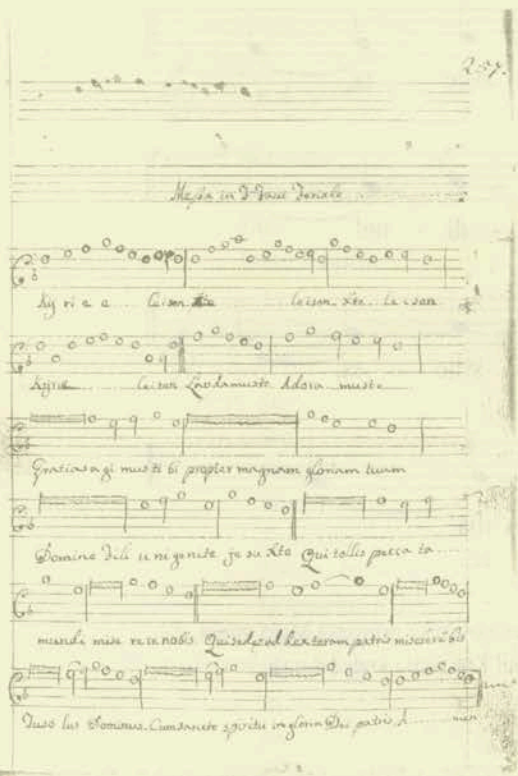 Messa in
Ky ri e e leison leison Xte leison
Kyrie leison Laudamuste Adora muste
Gratias agi mus ti bi propter magnam gloriam tuam
Domine Fili u ni genite je su Xte Qui tollis pecca ta
mundi mise re re nobis Qui sedes ad dexteram patris miserere
Tuso lus Dominus. Cumsancte spiritu in gloria Dei patris A men